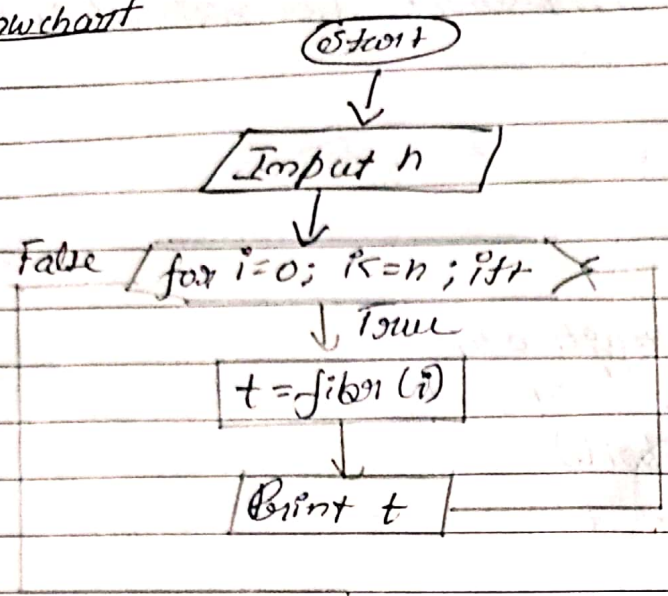 owchart
Start
Input n
False for i=0; i<=n; i++
True
t=fibr(i)
Print t